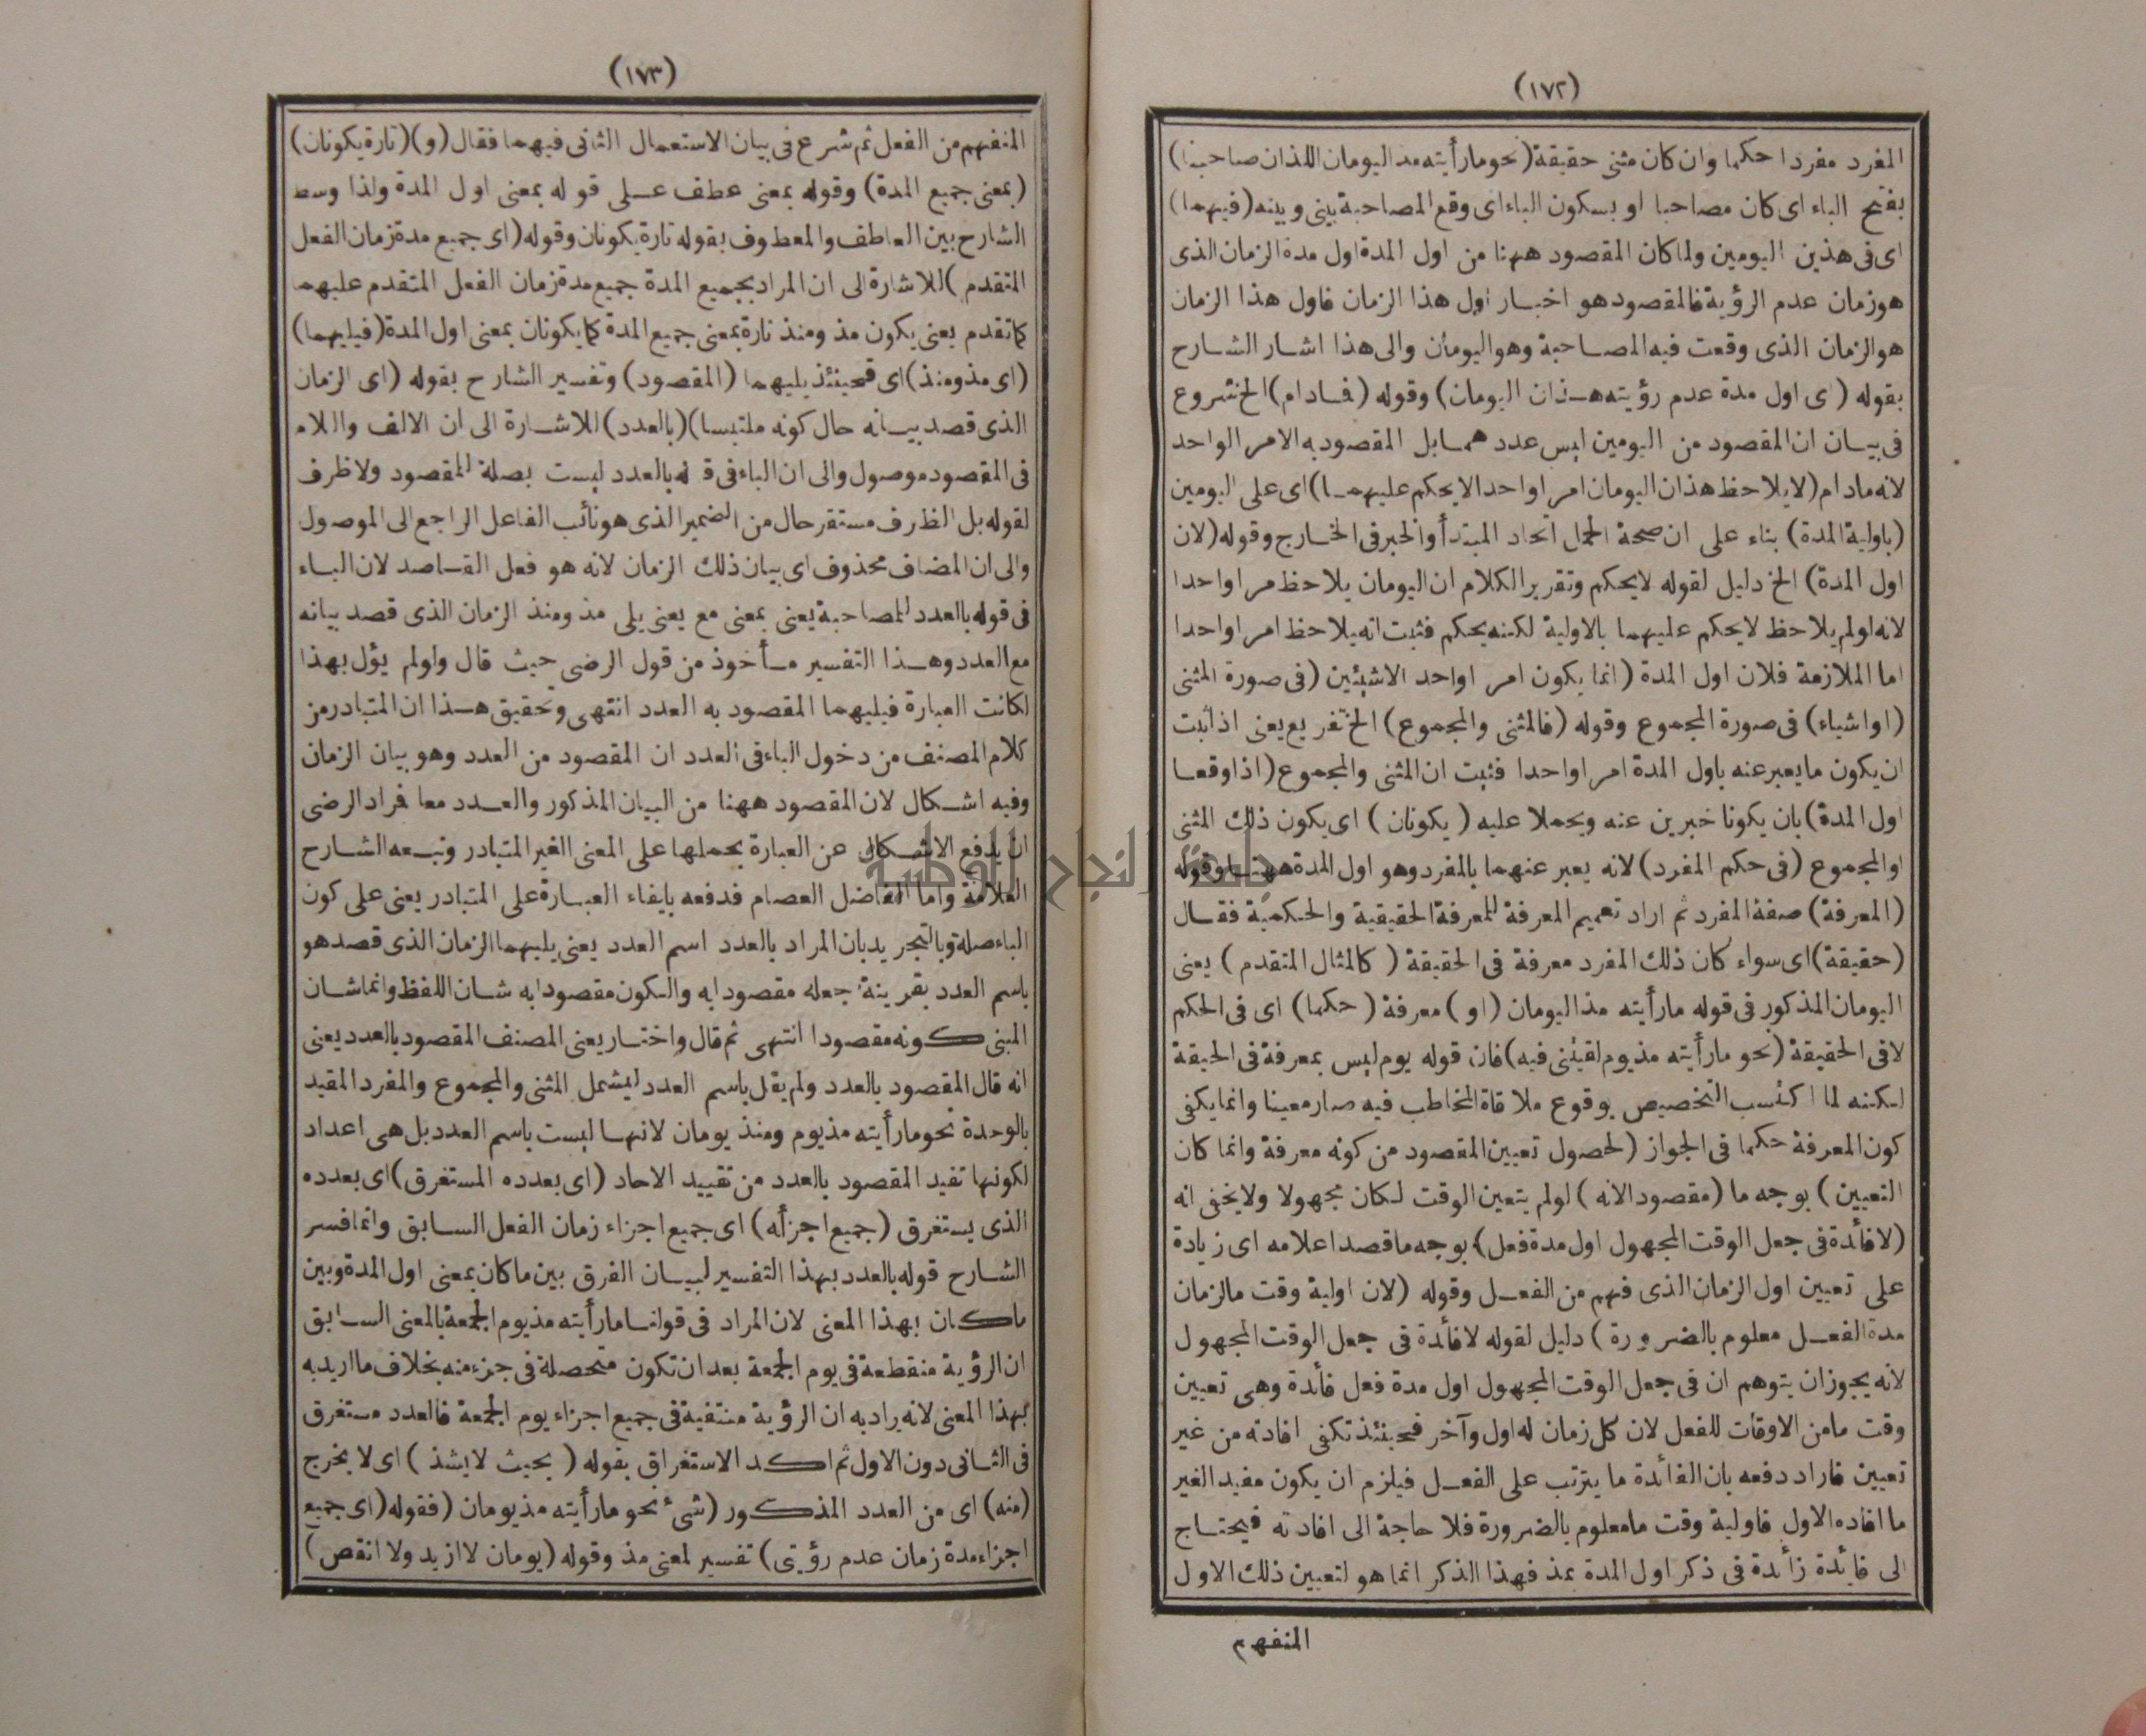 (١٧٢)
المفرد مفردا حكما وان كان مثنى حقيقة (نحو مارأيته مذ اليومان اللذان صاحبنا)
بفتح الباء اى كان مصاحبا او بسكون الباء اى وقع المصاحبة بينى وبينه (فيهما)
اى فى هذين اليومين ولما كان المقصود ههنا من اول المدة اول مدة الزمان الذى
هو زمان عدم الرؤية فالمقصود هو اخبار اول هذا الزمان فاول هذا الزمان
هو الزمان الذى وقعت فيه المصاحبة وهو اليومان والى هذا اشار الشارح
بقوله (اى اول مدة عدم رؤيته هذان اليومان) وقوله (فادام) الخ شروع
فى بيان ان المقصود من اليومين ليس عددهما بل المقصود به الامر الواحد
لانه مادام (لا يلاحظ هذان اليومان امرا واحدا لا يحكم عليهما) اى على اليومين
(باولية المدة) بناء على ان صحة الحمل اتحاد المبتدأ والخبر فى الخارج وقوله (لان
اول المدة) الخ دليل لقوله لا يحكم وتقرير الكلام ان اليومان يلاحظ مرا واحدا
لانه لو لم يلاحظ لا يحكم عليهما بالاولية لكنه يحكم فثبت انه يلاحظ امرا واحدا
اما الملازمة فلان اول المدة (انما يكون امرا واحدا لا شيئين (فى صورة المثنى
(او اشياء) فى صورة المجموع وقوله (فالمثنى والمجموع) الخ تفريع يعنى اذا ثبت
ان يكون ما يعبر عنه باول المدة امرا واحدا فثبت ان المثنى والمجموع (اذا وقعا
اول المدة) بان يكونا خبرين عنه ويحملا عليه (يكونان) اى يكون ذلك المثنى
او المجموع (فى حكم المفرد) لانه يعبر عنهما بالمفرد وهو اول المدة ههنا وقوله
(المعرفة) صفة المفرد ثم اراد تعميم المعرفة للمعرفة الحقيقية والحكمية فقال
(حقيقة) اى سواء كان ذلك المفرد معرفة فى الحقيقة (كالمثال المتقدم) يعنى
اليومان المذكور فى قوله مارأيته مذ اليومان (او) معرفة (حكما) اى فى الحكم
لا فى الحقيقة (نحو مارأيته مذ يوم لقيتنى فيه) فان قوله يوم ليس بمعرفة فى الحيقة
لكنه لما اكتسب التخصيص بوقوع ملاقاة المخاطب فيه صار معينا وانما يكفى
كون المعرفة حكما فى الجواز (لحصول تعيين المقصود من كونه معرفة وانما كان
التعيين) بوجه ما (مقصودا لانه) لو لم يتعين الوقت لكان مجهولا ولا يخفى انه
(لا فائدة فى جعل الوقت المجهول اول مدة فعل) بوجه ما قصد اعلامه اى زيادة
على تعيين اول الزمان الذى فهم من الفعل وقوله (لان اولية وقت ما لزمان
مدة الفعل معلوم بالضرورة) دليل لقوله لا فائدة فى جعل الوقت المجهول
لانه يجوز ان يتوهم ان فى جعل الوقت المجهول اول مدة فعل فائدة وهى تعيين
وقت ما من الاوقات للفعل لان كل زمان له اول وآخر فحينئذ تكفى افادته من غير
تعيين فاراد دفعه بان الفائدة ما يترتب على الفعل فيلزم ان يكون مفيد الغير
ما افاده الاول فاولية وقت ما معلوم بالضرورة فلا حاجة الى افادته فيحتاج
الى فائدة زائدة فى ذكر اول المدة بمذ فهذا الذكر انما هو لتعيين ذلك الاول
المنفهم
(١٧٣)
المنفهم من الفعل ثم شرع فى بيان الاستعمال الثانى فيهما فقال (و) (تارة يكونان)
(بمعنى جميع المدة) وقوله بمعنى عطف على قوله بمعنى اول المدة ولذا وسط
الشارح بين العاطف والمعطوف بقوله تارة يكونان وقوله (اى جميع مدة زمان الفعل
المتقدم) للاشارة الى ان المراد بجميع المدة جميع مدة زمان الفعل المتقدم عليهما
كما تقدم يعنى يكون مذ ومنذ تارة بمعنى جميع المدة كما يكونان بمعنى اول المدة (فيليهما)
(اى مذ ومنذ) اى فحينئذ يليهما (المقصود) وتفسير الشارح بقوله (اى الزمان
الذى قصد بيانه حال كونه ملتبسا) (بالعدد) للاشارة الى ان الالف واللام
فى المقصود موصول والى ان الباء فى قوله بالعدد ليست بصلة للمقصود ولا ظرف
لقوله بل الظرف مستقر حال من الضمير الذى هو نائب الفاعل الراجع الى الموصول
والى ان المضاف محذوف اى بيان ذلك الزمان لانه هو فعل القاصد لان الباء
فى قوله بالعدد للمصاحبة يعنى بمعنى مع يعنى يلى مذ ومنذ الزمان الذى قصد بيانه
مع العدد وهذا التفسير مأخوذ من قول الرضى حيث قال ولو لم يؤل بهذا
لكانت العبارة فيليهما المقصود به العدد انتهى وتحقيق هذا ان المتبادر من
كلام المصنف من دخول الباء فى العدد ان المقصود من العدد وهو بيان الزمان
وفيه اشكال لان المقصود ههنا من البيان المذكور والعدد معا فراد الرضى
ان يدفع الاشكال عن العبارة بحملها على المعنى الغير المتبادر وتبعه الشارح
العلامة واما الفاضل العصام فدفعه بابقاء العبارة على المتبادر يعنى على كون
الباء صلة وبالتجريد بان المراد بالعدد اسم العدد يعنى يليهما الزمان الذى قصد هو
باسم العدد بقرينة جعله مقصودا به والكون مقصودا به شان اللفظ وانما شان
المبنى كونه مقصودا انتهى ثم قال واختار يعنى المصنف المقصود بالعدد يعنى
انه قال المقصود بالعدد ولم يقل باسم العدد ليشمل المثنى والمجموع والمفرد المقيد
بالوحدة نحو مارأيته مذ يوم ومنذ يومان لانها ليست باسم العدد بل هى اعداد
لكونها تفيد المقصود بالعدد من تقييد الاحاد (اى بعدده المستغرق) اى بعدده
الذى يستغرق (جميع اجزأه) اى جميع اجزاء زمان الفعل السابق وانما فسر
الشارح قوله بالعدد بهذا التفسير لبيان الفرق بين ما كان بمعنى اول المدة وبين
ما كان بهذا المعنى لان المراد فى قولنا مارأيته مذ يوم الجمعة بالمعنى السابق
ان الرؤية منقطعة فى يوم الجمعة بعد ان تكون متحصلة فى جزء منه بخلاف ما اريد به
بهذا المعنى لانه يراد به ان الرؤية منتفية فى جميع اجزاء يوم الجمعة فالعدد مستغرق
فى الثانى دون الاول ثم اكد الاستغراق بقوله (بحيث لا يشذ) اى لا يخرج
(منه) اى من العدد المذكور (شىء نحو مارأيته مذ يومان (فقوله (اى جميع
اجزاء مدة زمان عدم رؤيتى) تفسير لمعنى مذ وقوله (يومان لا ازيد ولا انقص)
جامعة النجاح الوطنية